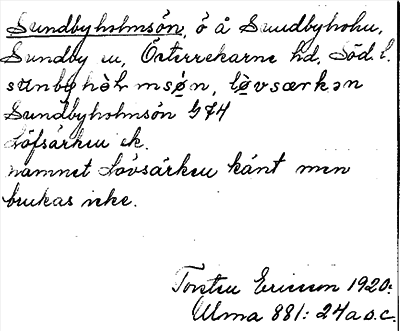 Sundbyholmsön, ö å Sundbyholm,
Sundby sn, Österrekarne hd, Söd. l.
sŭnbyhòl msø̀n, lø̀vsærkən
Sundbyholmsön G 74
Löfsärken ek.
namnet Lövsärken känt men
brukas icke.
Torsten Ericsson 1920:
Ulma 881: 24 a o. c.